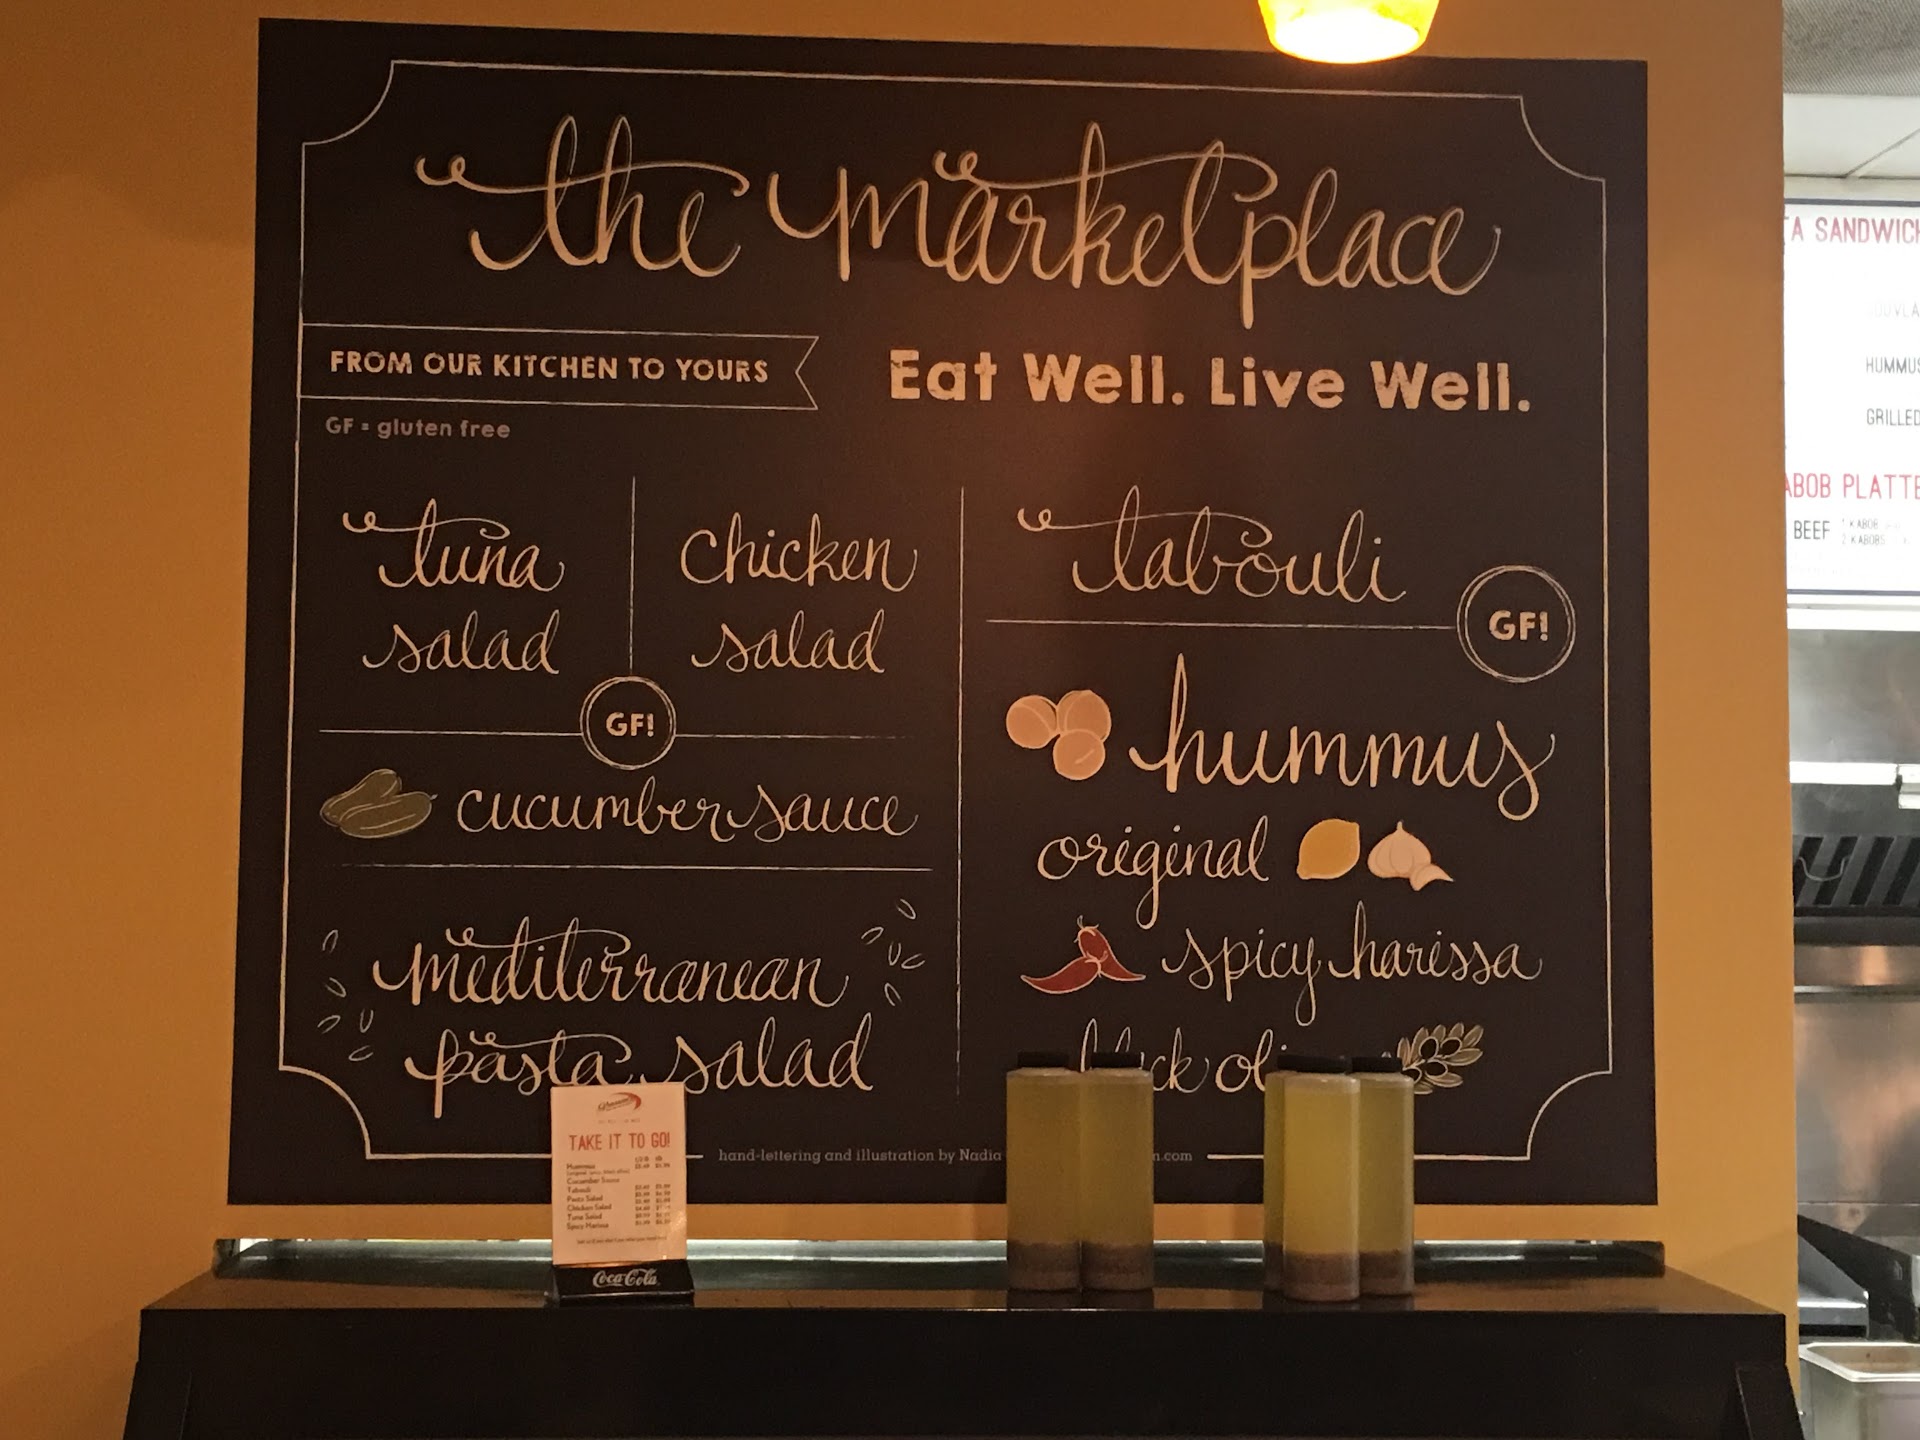 the marketplace
FROM OUR KITCHEN TO YOURS
Eat Well. Live Well.
GF = gluten free
tuna
salad
chicken
salad
GF!
cucumber sauce
mediterranean
pasta salad
tabouli
GF!
hummus
original
spicy harissa
hand-lettering and illustration by Nadia
TAKE IT TO GO!
Hummus
Cucumber Sauce
Tabouli
Pasta Salad
Chicken Salad
Tuna Salad
Spicy Harissa
Coca-Cola
TA SANDWICH
HUMMUS
GRILLED
ABOB PLATTE
BEEF
1 KABOB
2 KABOBS